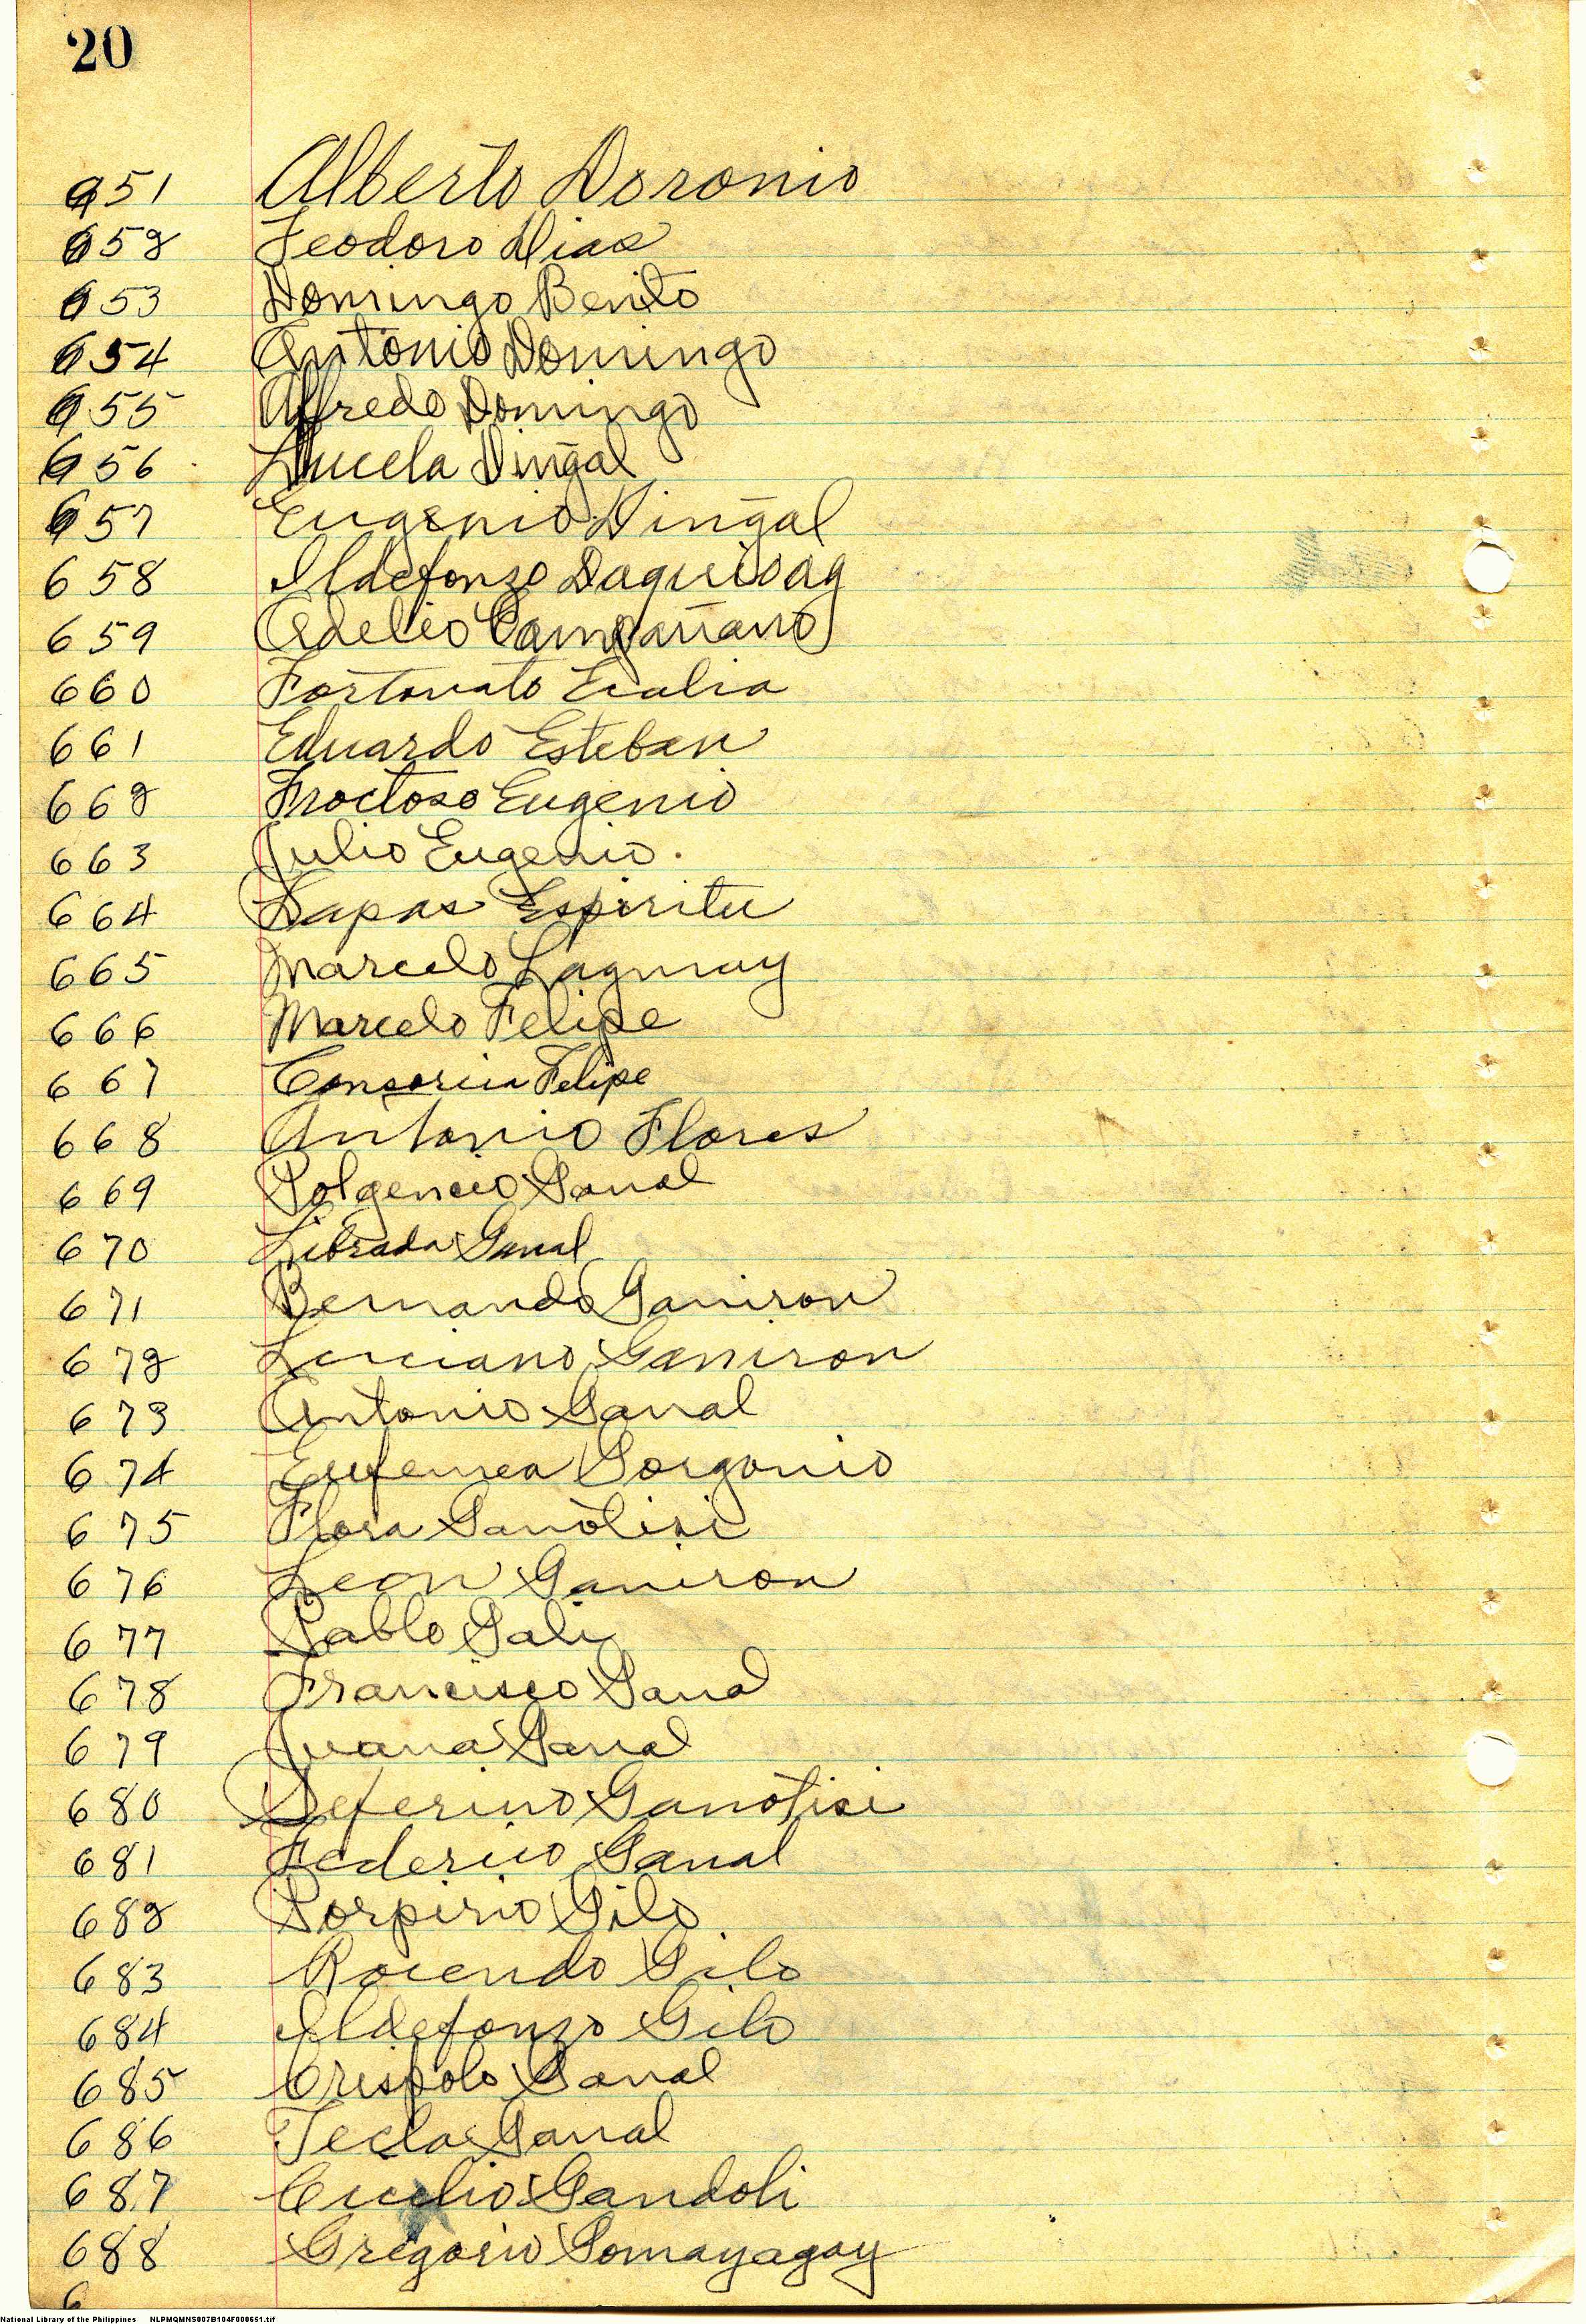 20
651 Alberto Doronio
652 Teodoro Dias
653 Domingo Benito
654 Antonio Domingo
655 Alfredo Domingo
656 Lucela Dingal
657 Eugenio Dingal
658 Ildefonzo Daquioag
659 Adelio Campañano
660 Fortunato Eealia
661 Eduardo Esteban
662 Froctoso Eugenio
663 Julio Eugenio.
664 Lapas Espiritu
665 Marcelo Lagmay
666 Marcelo Felipe
667 Consorcia Felipe
668 Antonio Flores
669 Polgencio Ganal
670 Librada Ganal
671 Bernando Ganiron
672 Luciano Ganiron
673 Antonio Ganal
674 Eufemea Gorgonio
675 Flora Ganotisi
676 Leon Ganiron
677 Pablo Gali
678 Francisco Ganal
679 Juana Ganal
680 Seferino Ganotisi
681 Federico Ganal
682 Porpirio Gilo
683 Rocendo Gilo
684 Ildefonzo Gilo
685 Crispolo Ganal
686 Tecla Ganal
687 Cicilio Gandoli
688 Gregorio Gomayagay
6
National Library of the Philippines NLPMQMNS007B104F000651.tif